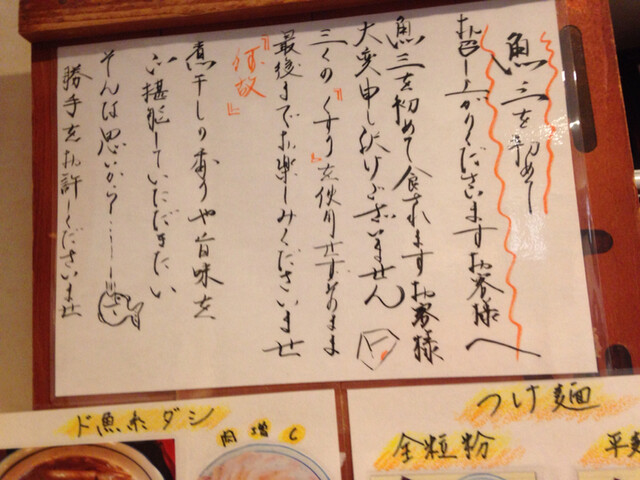 魚三を初めて
お召し上がりくださいますお客様へ
魚三を初めて食されますお客様
大変申し訳けございません
三くの『くすり』を使用せずあるまま
最後までお楽しみくださいませ
『何故』
煮干しの香りや旨味を
ご堪能していただきたい
そんな思いから……
勝手をお許しくださいませ
ド魚赤ダシ
肉増し
つけ麺
全粒粉